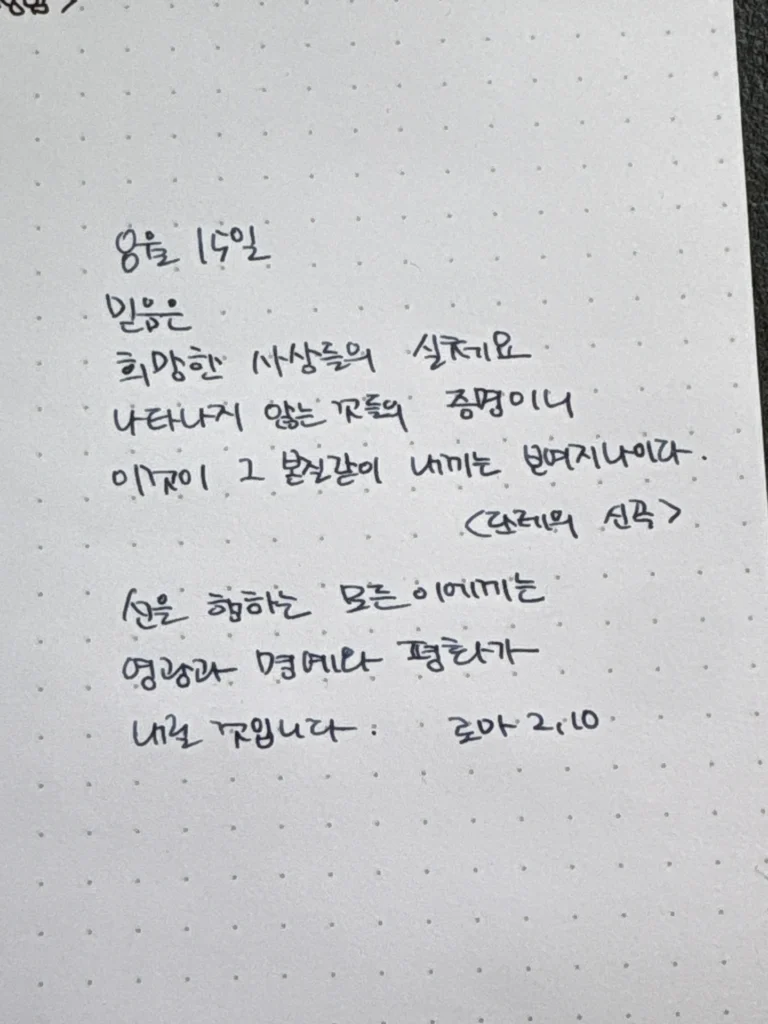 8월 15일
믿음은
희망한 사상들의 실체요
나타나지 않는 것들의 증명이니
이것이 그 본질같이 내끼는 보여지나이다.
<단테의 신곡>
선을 행하는 모든 이에게는
영광과 명예와 평화가
내릴 것입니다. 로마 2,10